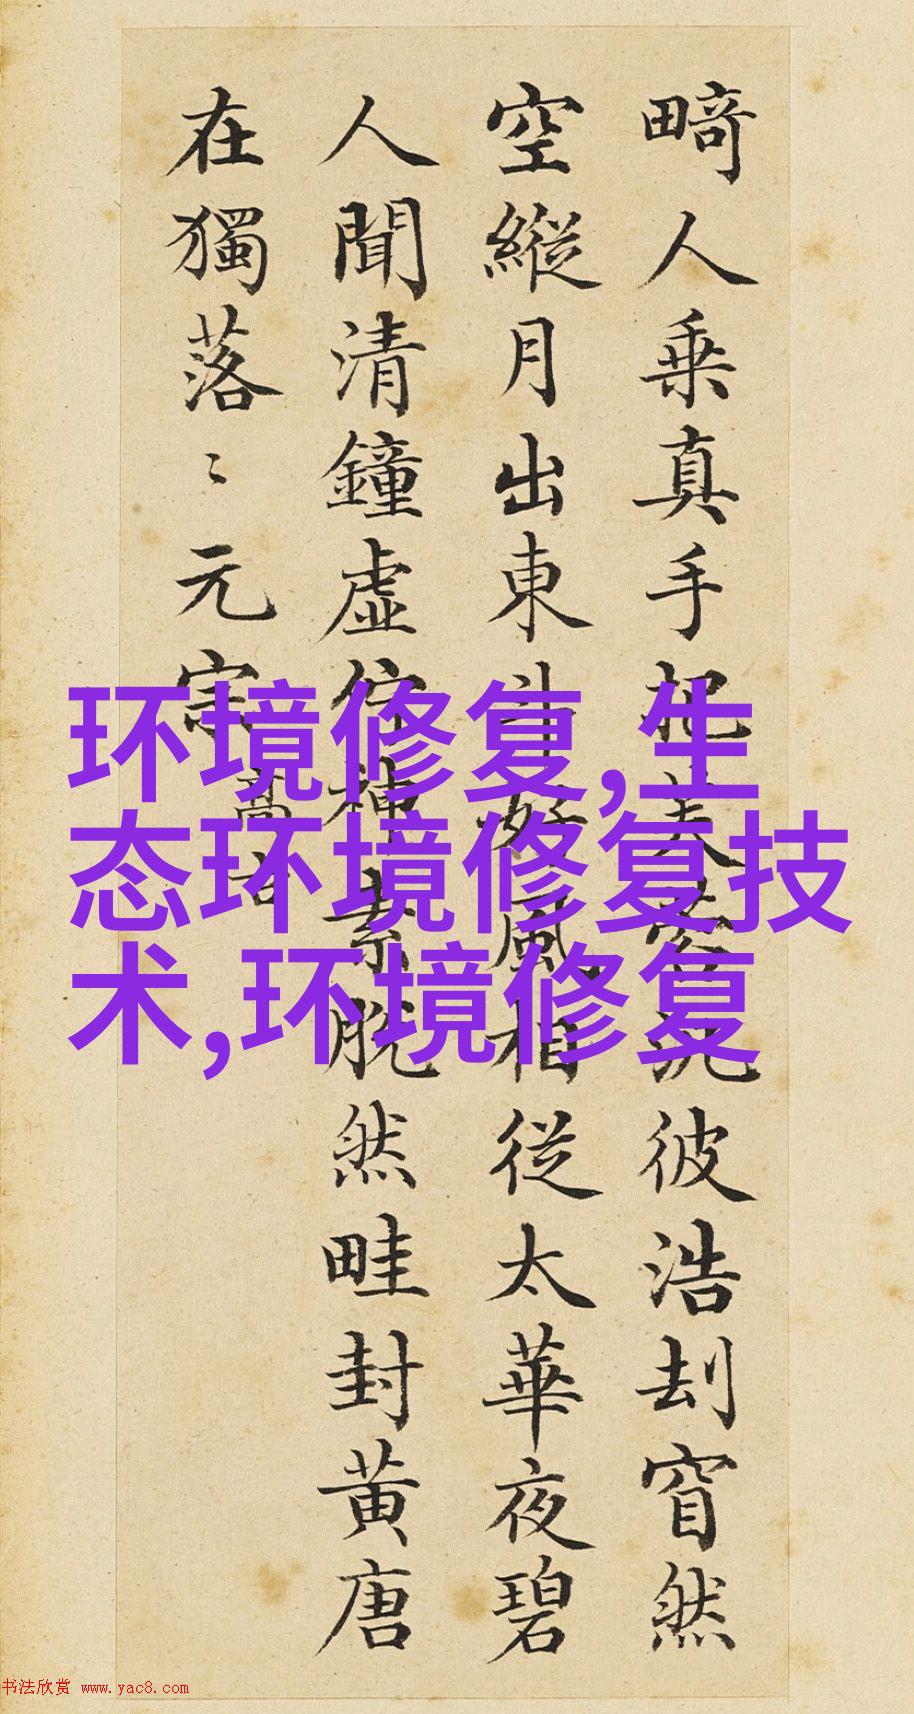 畸人乗真手把芙蓉汎彼浩刦窅然
空縱月出東斗好風相從太華夜碧
人聞清鐘虛佇神素脫然畦封黃唐
在獨落〻元宗
高古
环境修复,生
态环境修复技
术,环境修复
书法欣赏 www.yac8.com